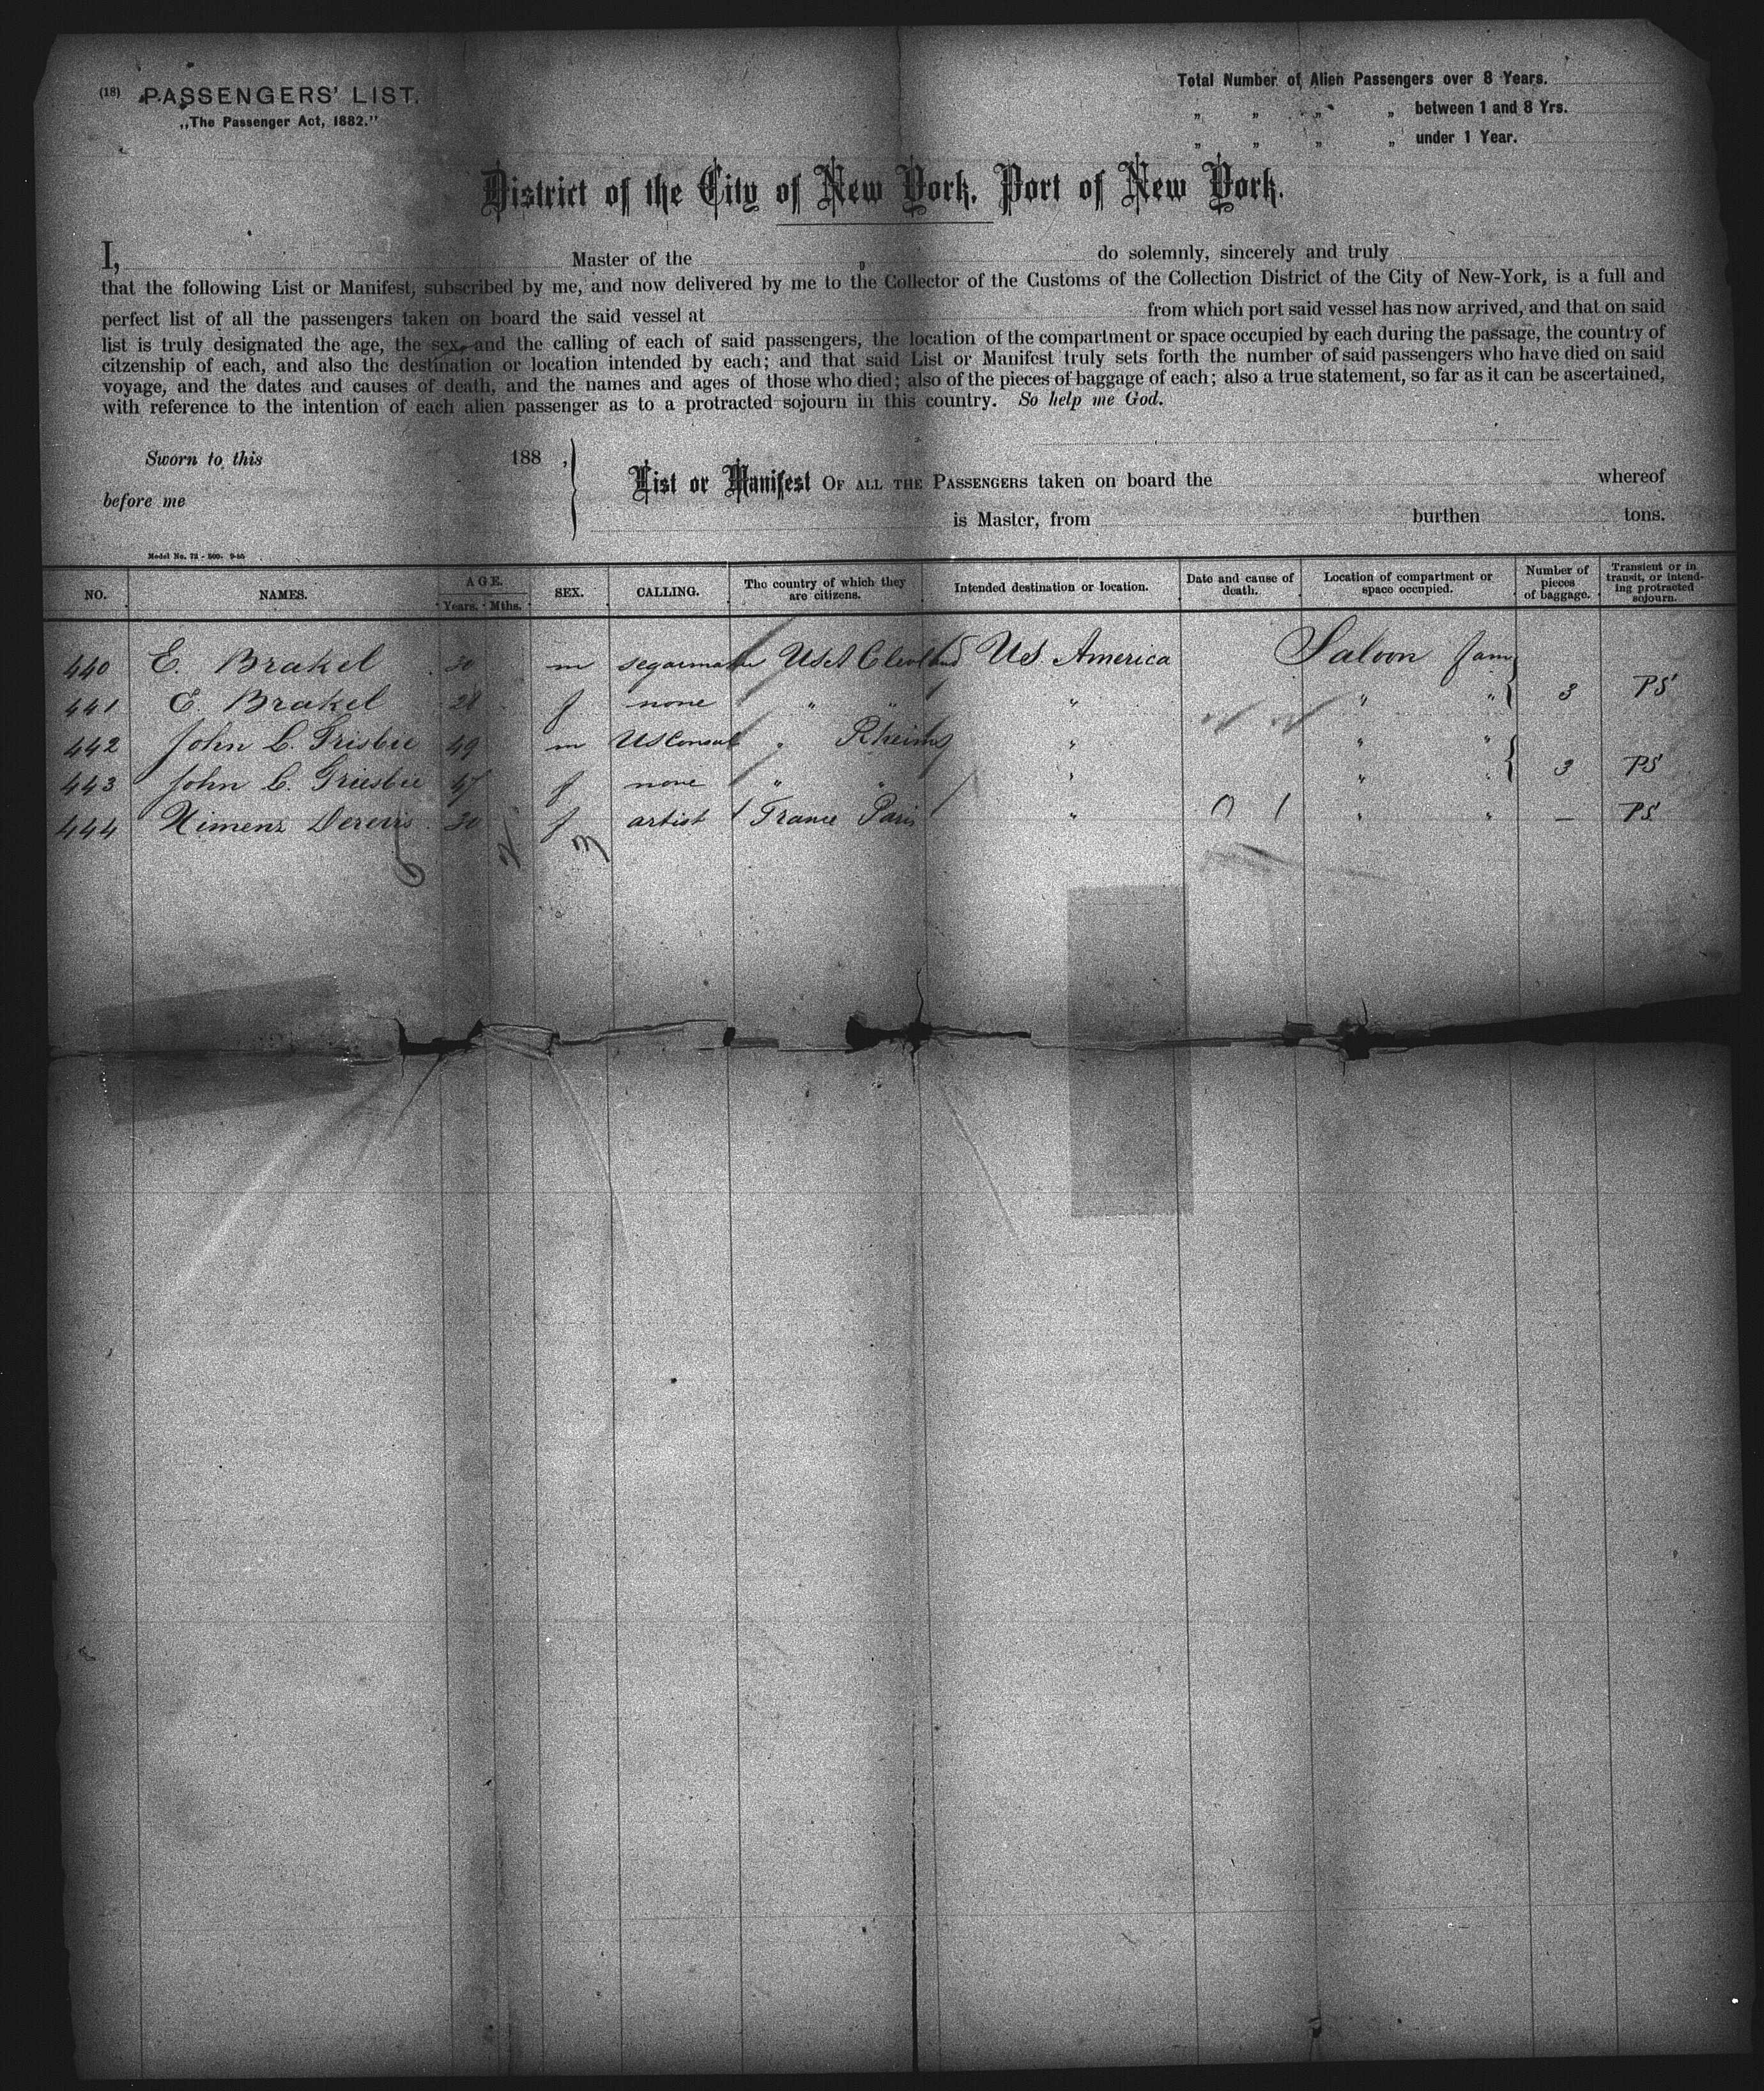 (18) PASSENGERS' LIST.
„The Passenger Act, 1882."
Total Number of Alien Passengers over 8 Years.
„ „ „ „ between 1 and 8 Yrs.
„ „ „ „ under 1 Year.
District of the City of New York, Port of New York.
I, Master of the do solemnly, sincerely and truly
that the following List or Manifest, subscribed by me, and now delivered by me to the Collector of the Customs of the Collection District of the City of New-York, is a full and
perfect list of all the passengers taken on board the said vessel at from which port said vessel has now arrived, and that on said
list is truly designated the age, the sex, and the calling of each of said passengers, the location of the compartment or space occupied by each during the passage, the country of
citzenship of each, and also the destination or location intended by each; and that said List or Manifest truly sets forth the number of said passengers who have died on said
voyage, and the dates and causes of death, and the names and ages of those who died; also of the pieces of baggage of each; also a true statement, so far as it can be ascertained,
with reference to the intention of each alien passenger as to a protracted sojourn in this country. So help me God.
Sworn to this 188 ,
before me
List or Manifest OF ALL THE PASSENGERS taken on board the whereof
is Master, from burthen tons.
Model No. 72
NO. NAMES. AGE. Years. Mths. SEX. CALLING. The country of which they are citizens. Intended destination or location. Date and cause of death. Location of compartment or space occupied. Number of pieces of baggage. Transient or in transit, or intending protracted sojourn.
440 E. Brakel 30 m segarmaker USA Cleveland US. America Saloon
441 E. Brakel 28 f none " " " " " 3 PS
442 John C. Frisbie 49 m US Consul " Rheims " " "
443 John C. Griesbie 47 f none " " " " " 3 PS
444 Ximens 30 f artist France Paris " " " — PS
6 2 3